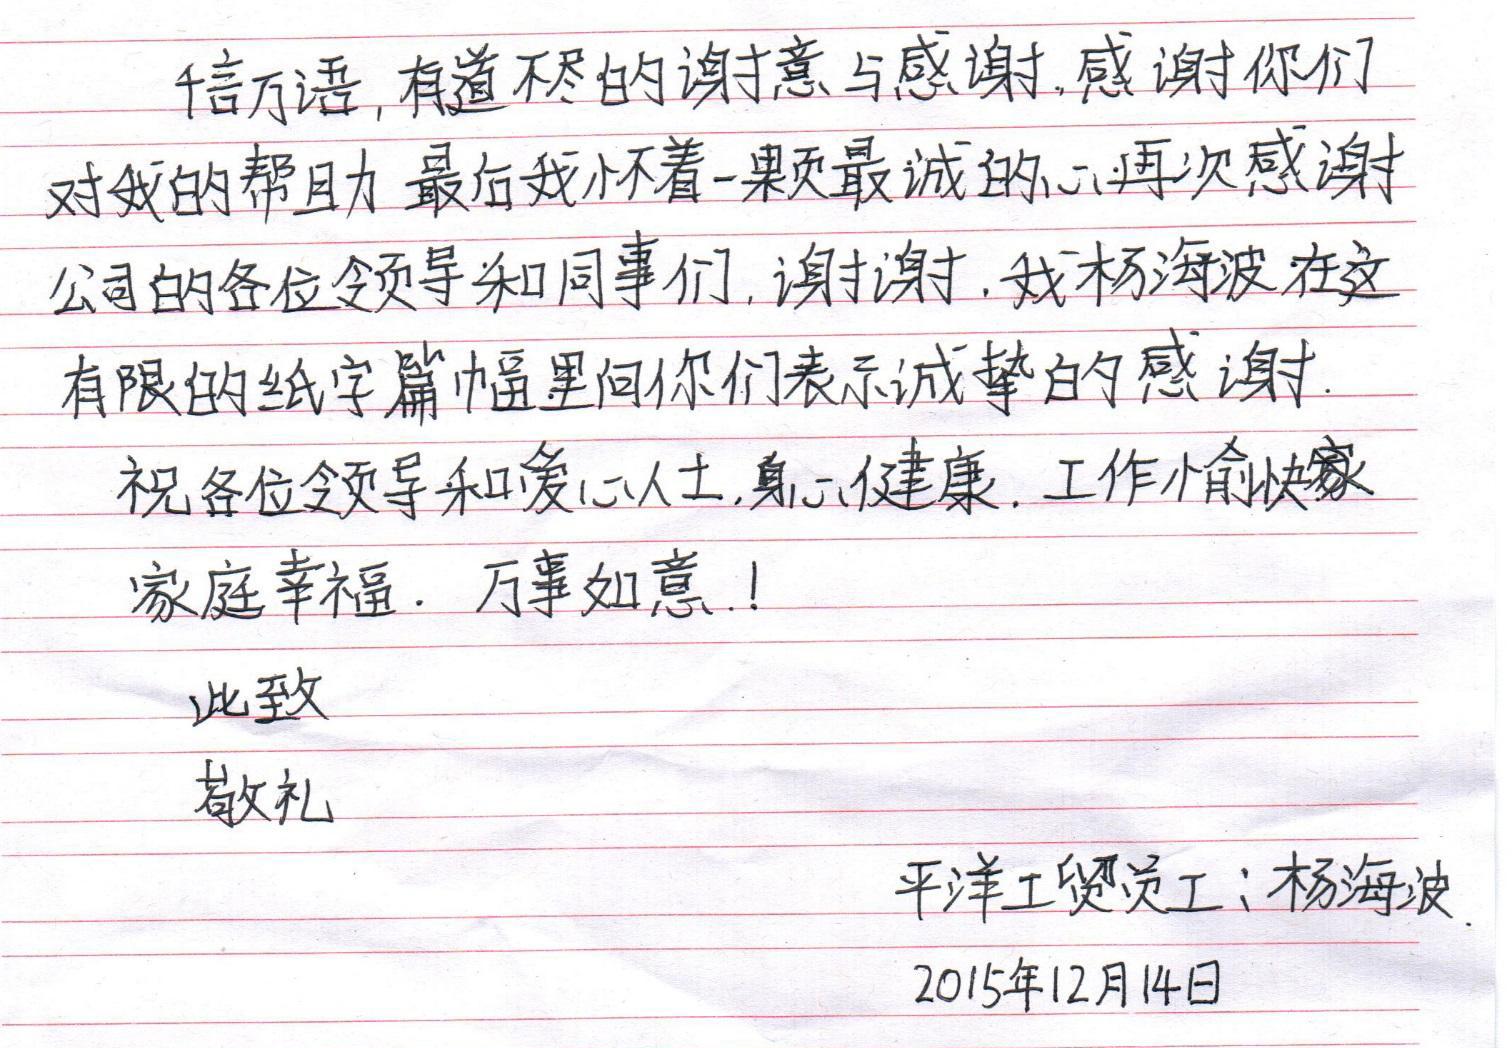 千言万语,有道不尽的谢意与感谢.感谢你们
对我的帮助 最后我怀着一颗最诚的心再次感谢
公司的各位领导和同事们,谢谢.我杨海波在这
有限的纸字篇幅里向你们表示诚挚的感谢.
祝各位领导和爱心人士,身心健康.工作愉快家
家庭幸福.万事如意.!
此致
敬礼
平洋工贸员工:杨海波.
2015年12月14日